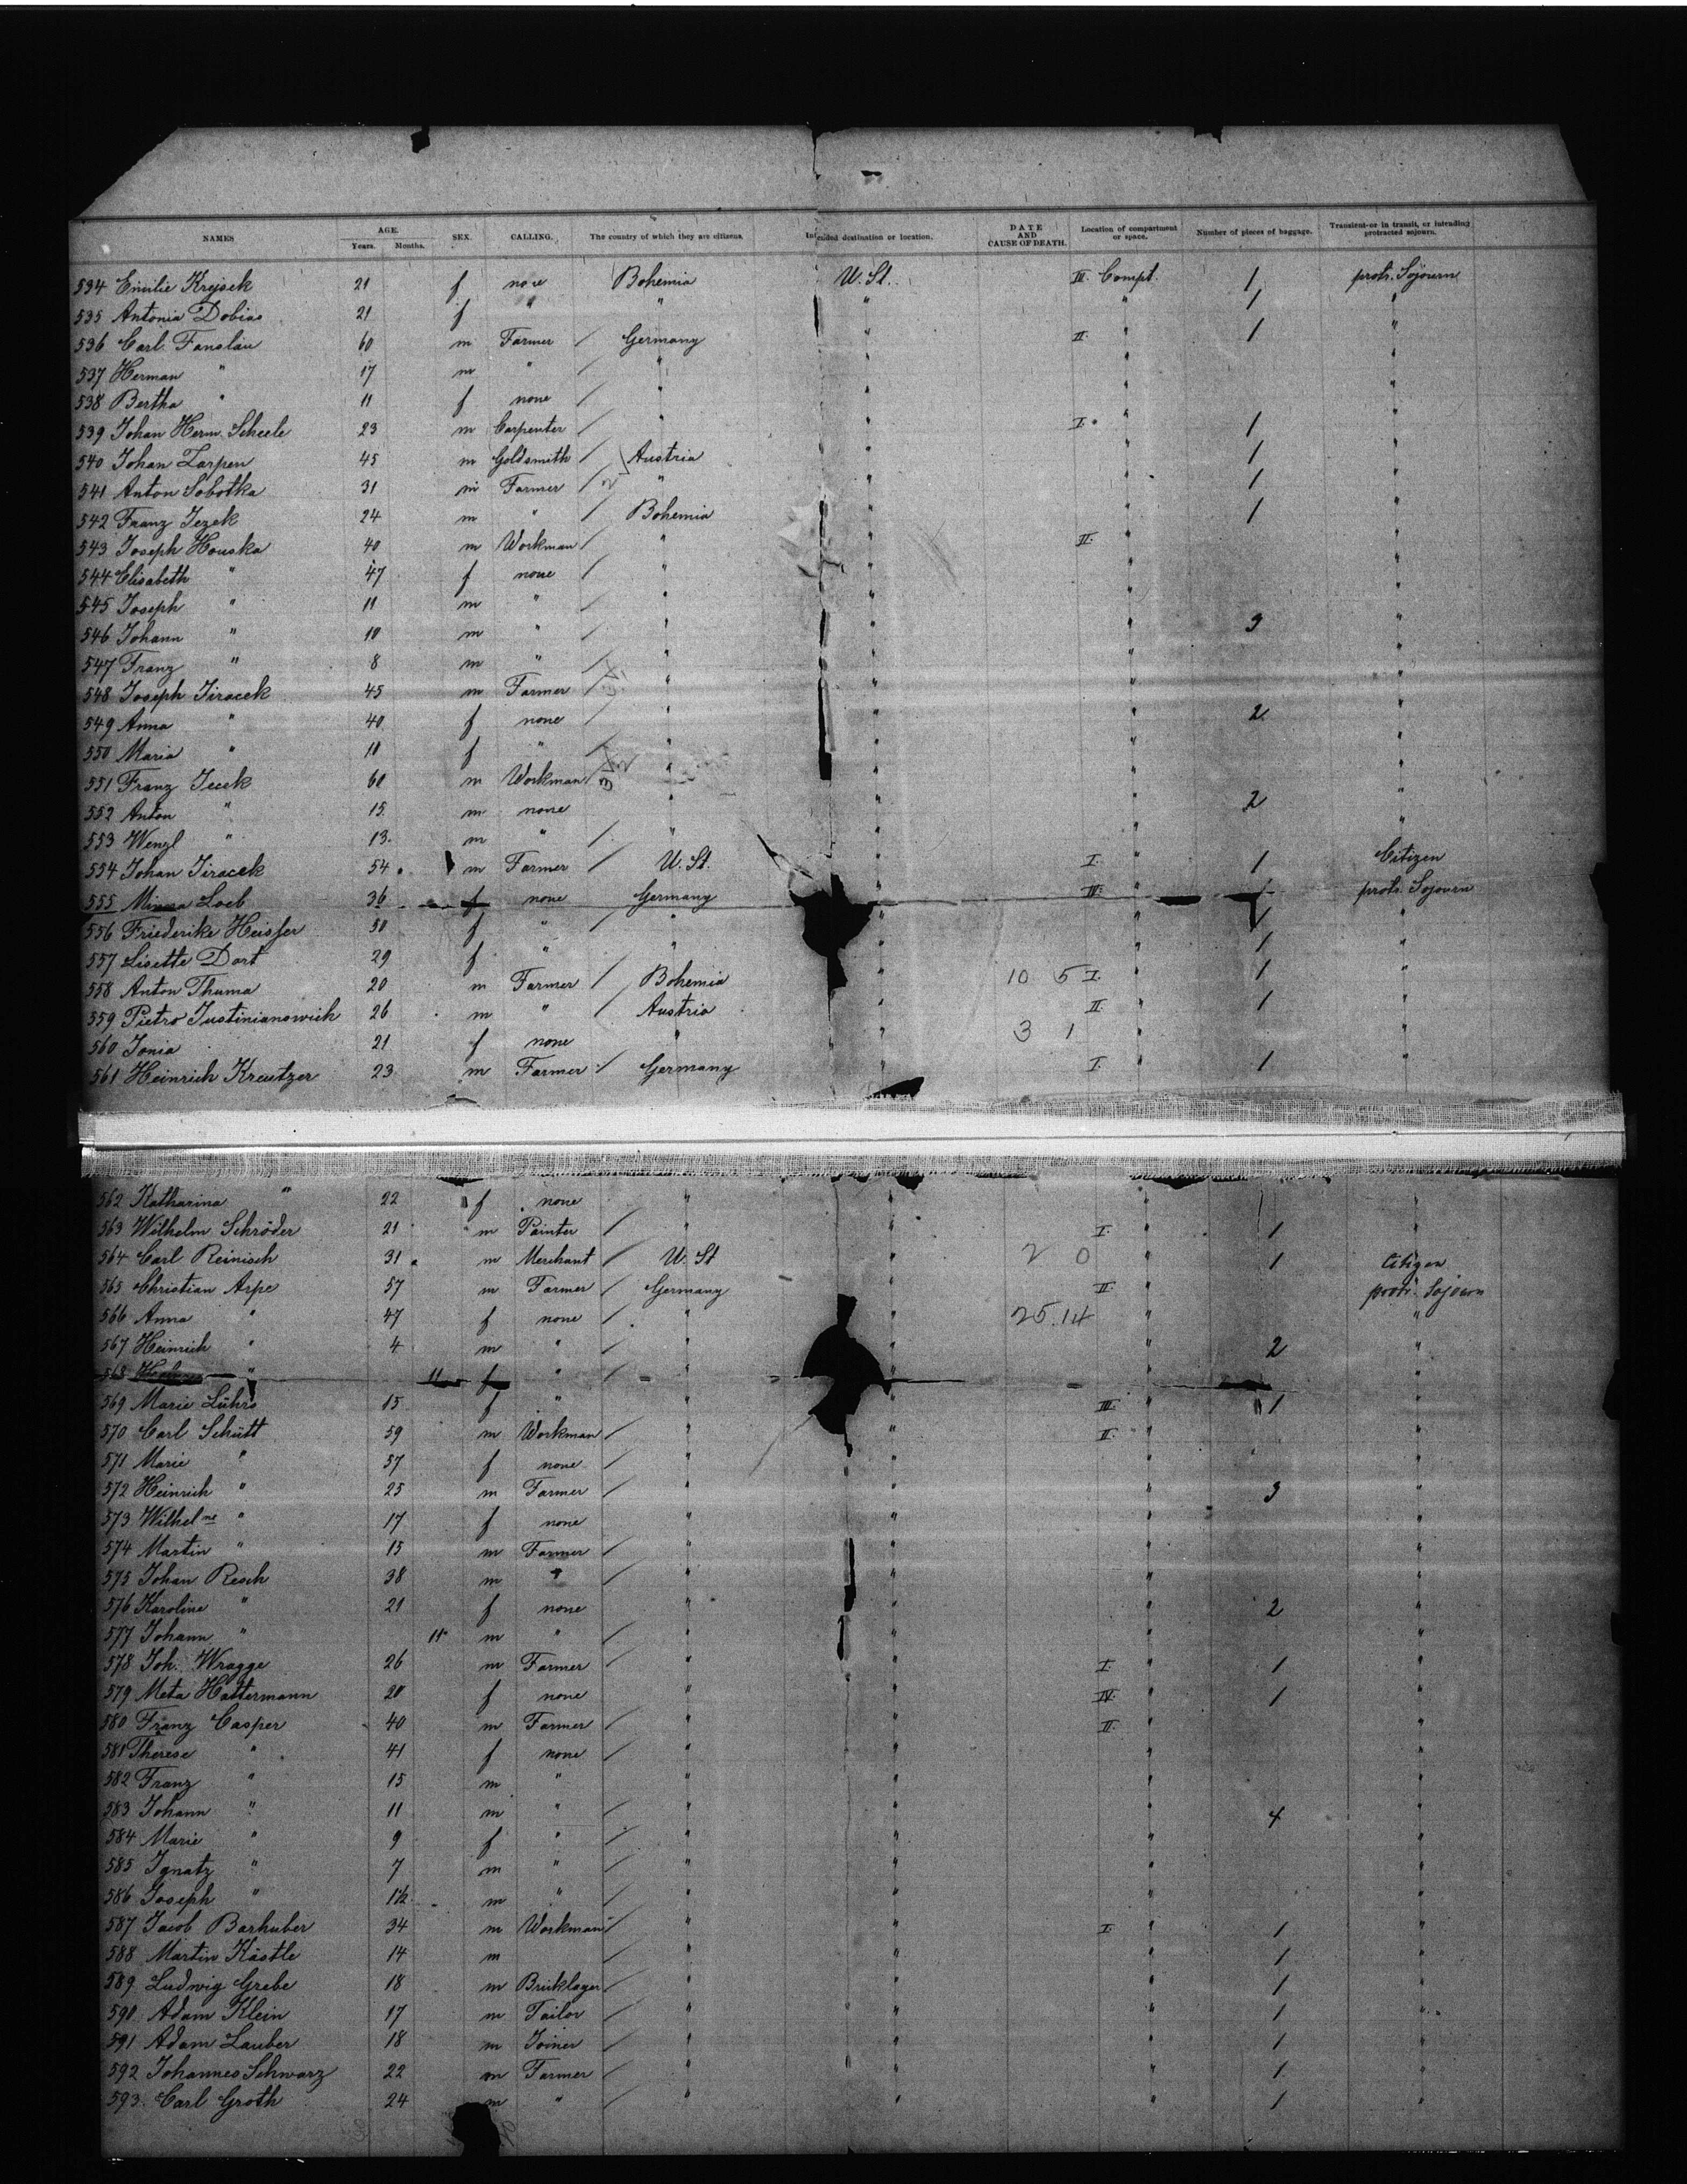 NAMES AGE. Years. Months. SEX. CALLING. The country of which they are citizens. Intended destination or location. DATE AND CAUSE OF DEATH. Location of compartment or space. Number of pieces of baggage. Transient or in transit, or intending protracted sojourn.
534 Emilie Krejsek 21 f none Bohemia U. St. IV. Compt. 1 protr. Sojourn
535 Antonia Dobias 21 f " " " " 1 "
536 Carl Fanslau 60 m Farmer / Germany " II. " 1 "
537 Herman " 17 m " / " " " "
538 Bertha " 11 f none / " " " "
539 Johan Herm. Scheele 23 m Carpenter / " " I. " 1 "
540 Johan Zarpen 45 m Goldsmith / Austria " " 1 "
541 Anton Sobotka 31 m Farmer / " " " 1 "
542 Franz Jezek 24 m " / Bohemia " " 1 "
543 Joseph Houska 40 m Workman / " " II. " "
544 Elisabeth " 47 f none / " " " "
545 Joseph " 11 m " / " " " "
546 Johann " 10 m " / " " " 3 "
547 Franz " 8 m " / " " " "
548 Joseph Jiracek 45 m Farmer / " " " "
549 Anna " 40 f none / " " " 2 "
550 Maria " 10 f " / " " " "
551 Franz Jecek 60 m Workman / " " " "
552 Anton " 15 m none " " " 2 "
553 Wenzl " 13 m " / " " " "
554 Johan Jiracek 54 m Farmer / U. St. " I. " 1 Citizen
555 Minna Loeb 36 f none Germany " IV. " 1 protr. Sojourn
556 Friederike Heisser 50 f " / " " 1 "
557 Lisette Dort 29 f " " " " 1 "
558 Anton Thuma 20 m Farmer / Bohemia " 10 5 I. " 1 "
559 Pietro Justinianowich 26 m " / Austria " II. " 1 "
560 Jonia 21 f none " " 3 1 " "
561 Heinrich Kreutzer 23 m Farmer / Germany " I. " 1 "
562 Katharina " 22 f none " " " "
563 Wilhelm Schröder 21 m Painter / " " I. " 1 "
564 Carl Reinisch 31 m Merchant / U. St " 2 0 " 1 Citizen
565 Christian Arpe 57 m Farmer / Germany " II. " protr. Sojourn
566 Anna " 47 f none / " " 25.14 " "
567 Heinrich " 4 m " " " " 2 "
568 " 11 f " / " " " "
569 Marie Lührs 15 f " " " III. " 1 "
570 Carl Schütt 59 m Workman / " " II. " "
571 Marie " 57 f none / " " " "
572 Heinrich " 25 m Farmer / " " " 3 "
573 Wilhelme " 17 f none " " " "
574 Martin " 15 m Farmer / " " " "
575 Johan Resch 38 m " / " " " "
576 Karoline " 21 f none " " " 2 "
577 Johann " 11 m " / " " " "
578 Joh. Wragge 26 m Farmer / " " I. " 1 "
579 Meta Hattermann 20 f none " " IV. " 1 "
580 Franz Casper 40 m Farmer / " " II. " "
581 Therese " 41 f none / " " " "
582 Franz " 15 m " " " " "
583 Johann " 11 m " / " " " 4 "
584 Marie " 9 f " / " " " "
585 Ignatz " 7 m " / " " " "
586 Joseph " 1½ m " / " " " "
587 Jacob Barhuber 34 m Workman / " " I. " 1 "
588 Martin Kästle 14 m / " " " 1 "
589 Ludwig Grebe 18 m Bricklayer / " " " 1 "
590 Adam Klein 17 m Tailor / " " " 1 "
591 Adam Lauber 18 m Joiner / " " " 1 "
592 Johannes Schwarz 22 m Farmer / " " " 1 "
593. Carl Groth 24 m " / " " " 1 "